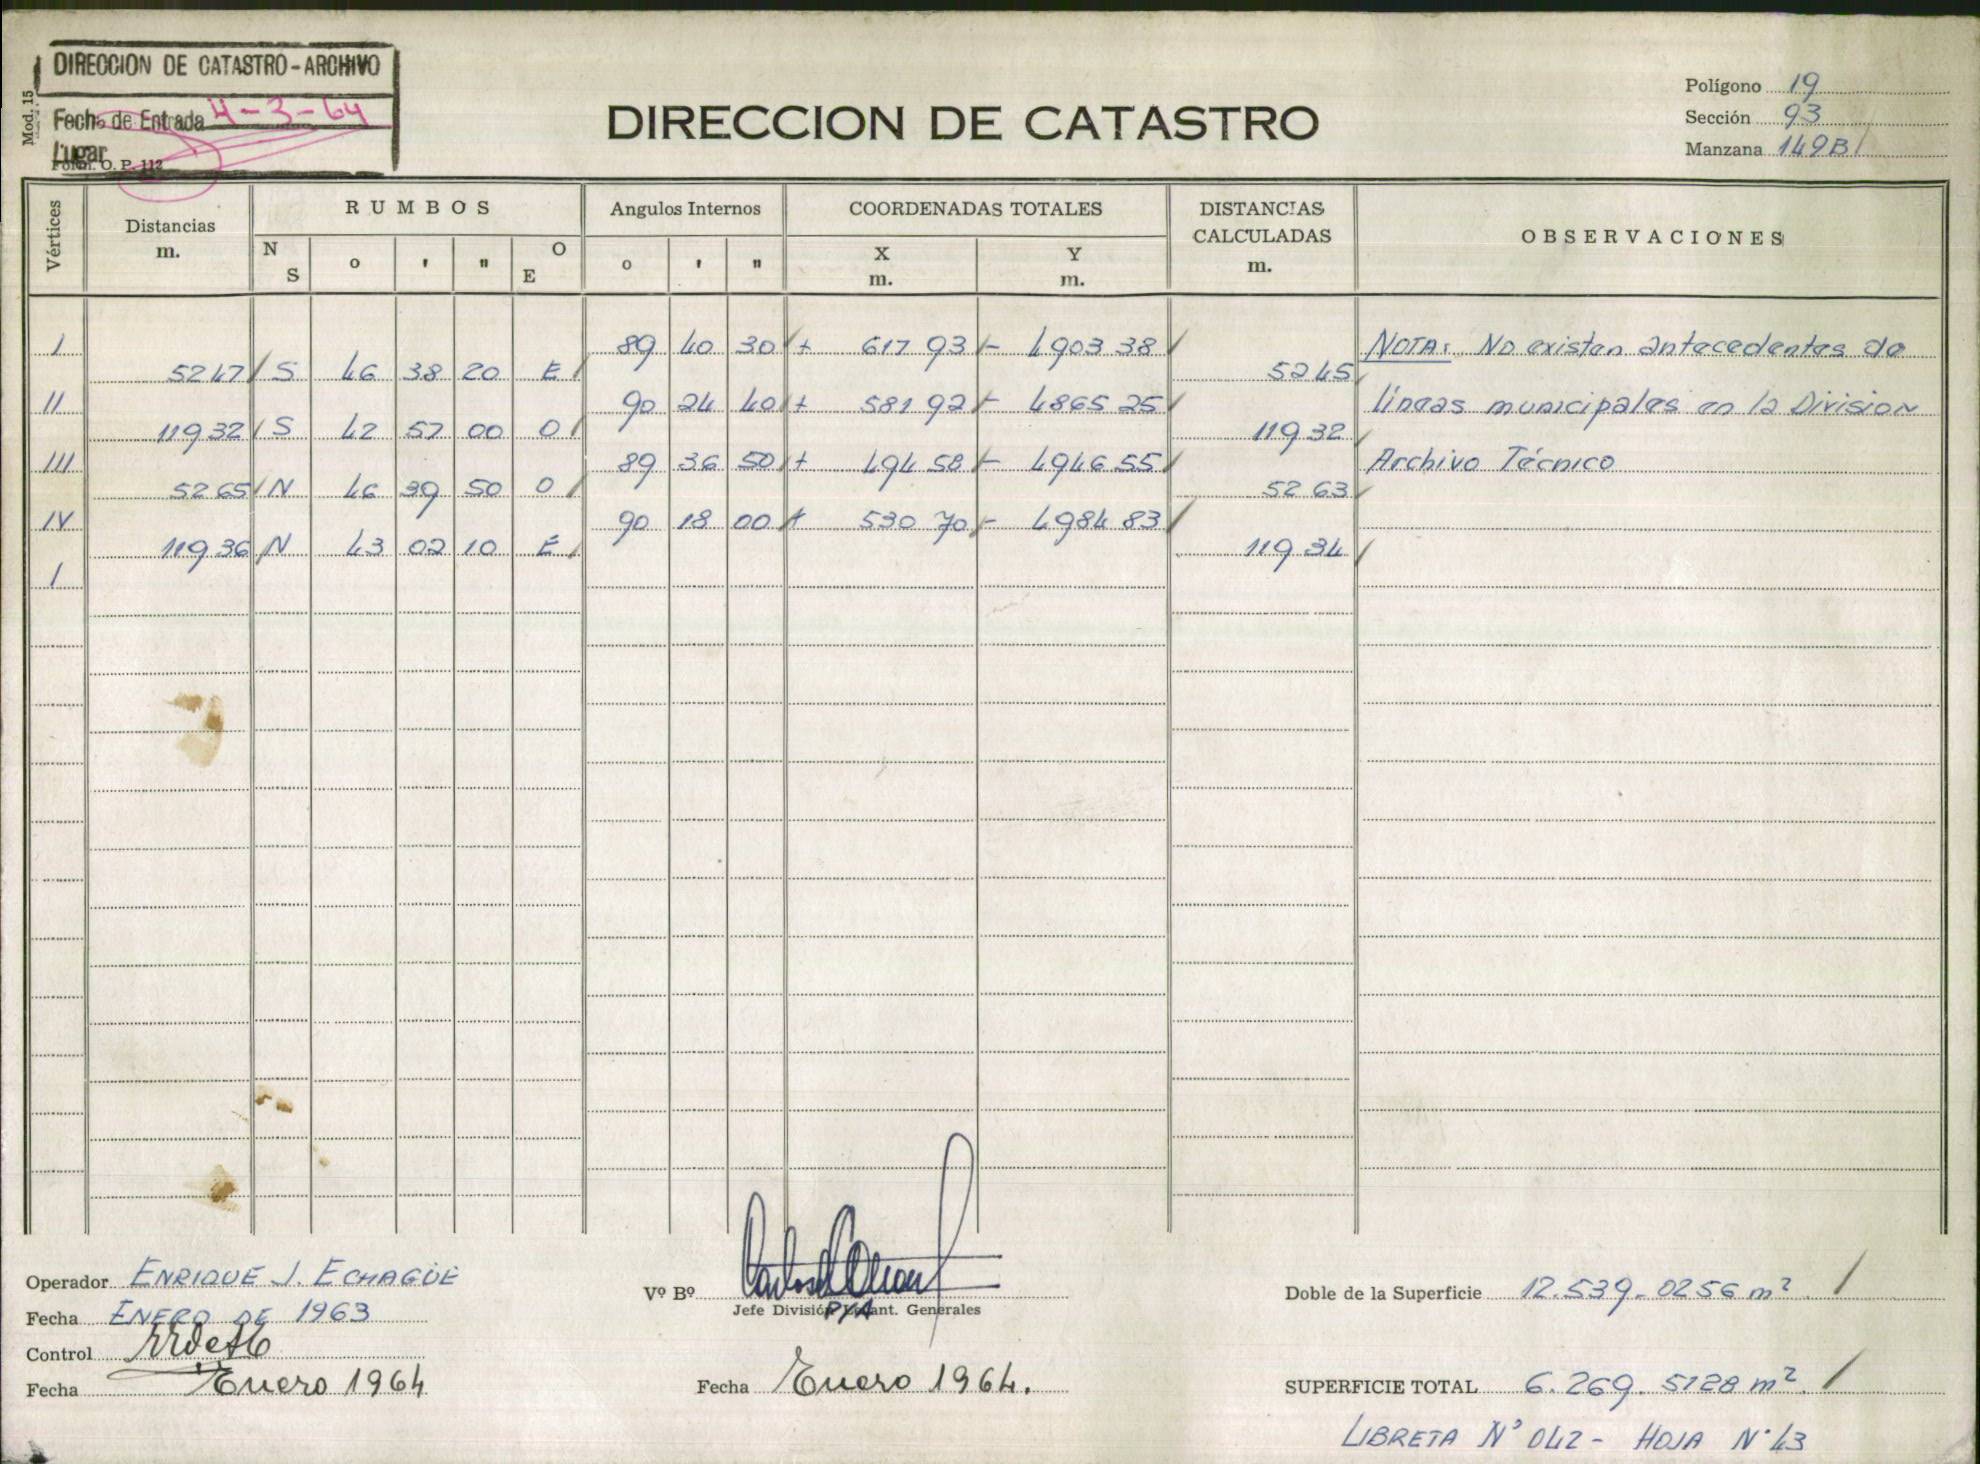 DIRECCION DE CATASTRO - ARCHIVO
Fecha de Entrada 4-3-64
Lugar
Mod. 15
Form. O. P. 112
DIRECCION DE CATASTRO
Polígono 19
Sección 93
Manzana 149B
Vértices
Distancias
m.
RUMBOS
N S o ' " O E
Angulos Internos
o ' "
COORDENADAS TOTALES
X m. Y m.
DISTANCIAS CALCULADAS
m.
OBSERVACIONES
I 89 40 30 + 617 93 - 4903 38 NOTA: No existen antecedentes de
52 47 S 46 38 20 E 52 45
II 90 24 40 + 581 92 - 4865 25 líneas municipales en la Division
119 32 S 42 57 00 O 119 32
III 89 36 50 + 494 58 - 4946 55 Archivo Técnico
52 65 N 46 39 50 O 52 63
IV 90 18 00 + 530 70 - 4984 83
119 36 N 43 02 10 E 119 34
I
Operador ENRIQUE J. ECHAGÜE
Fecha ENERO DE 1963
Control
Fecha Enero 1964
Vº Bº
Jefe División Levant. Generales
Fecha Enero 1964.
Doble de la Superficie 12.539.0256 m²
SUPERFICIE TOTAL 6.269.5128 m².
LIBRETA Nº 042 - HOJA Nº 43